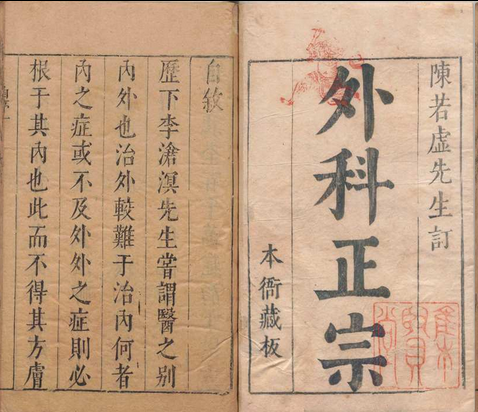 陳若虛先生訂
外科正宗
本衙藏板
自敘
歷下李滄溟先生嘗謂醫之别
內外也治外較難于治內何者
內之症或不及外外之症則必
根于其內也此而不得其方膚